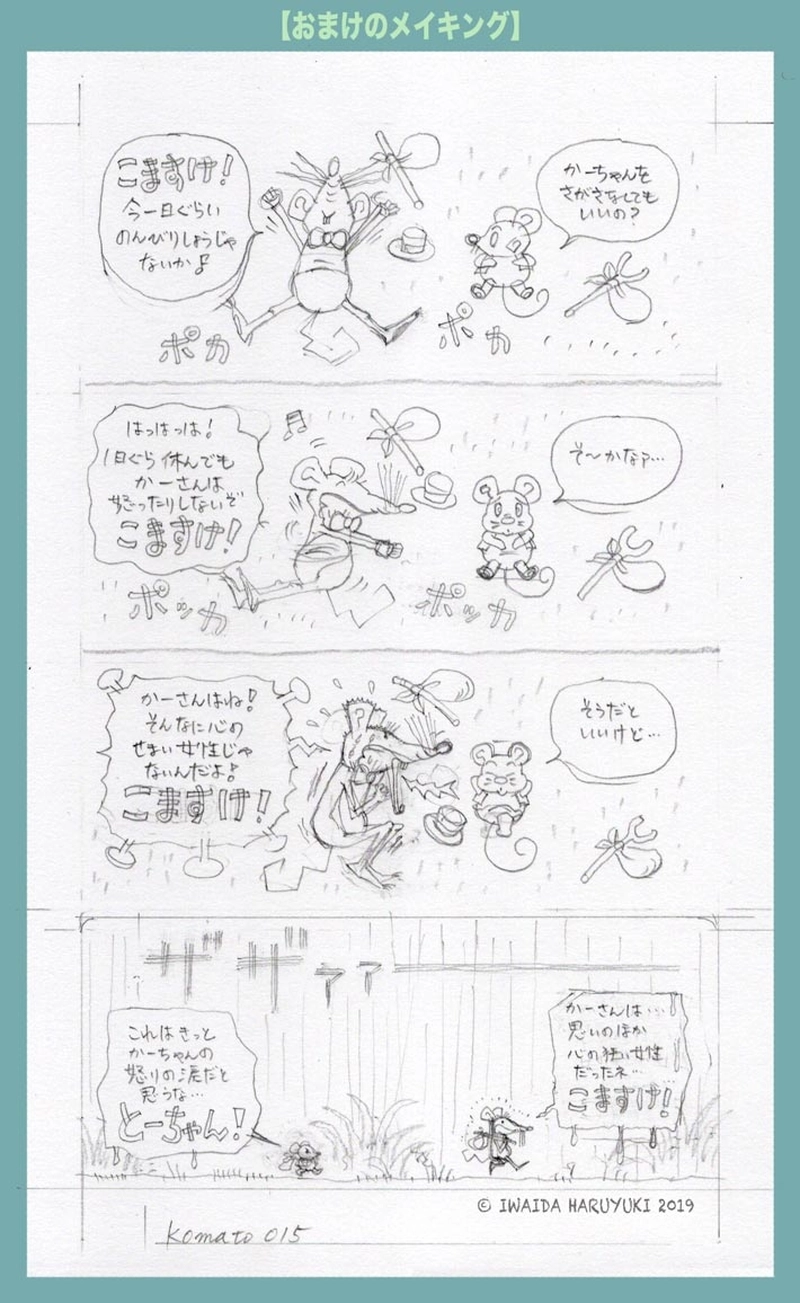 【おまけのメイキング】
こますけ!
今一日ぐらい
のんびりしようじゃ
ないか♪
かーちゃんを
さがさなくても
いいの?
ポカ
ポカ
はっはっは!
1日ぐら休んでも
かーさんは
怒ったりしないぞ
こますけ!
そ〜かなァ…
ポッカ
ポッカ
かーさんはね!
そんなに心の
せまい女性じゃ
ないんだよ!
こますけ!
そうだと
いいけど…
ザザァァー
かーさんは…
思いのほか
心の狭い女性
だったネ…
こますけ!
これはきっと
かーちゃんの
怒りの涙だと
思うな…
とーちゃん!
© IWAIDA HARUYUKI 2019
Komato 015